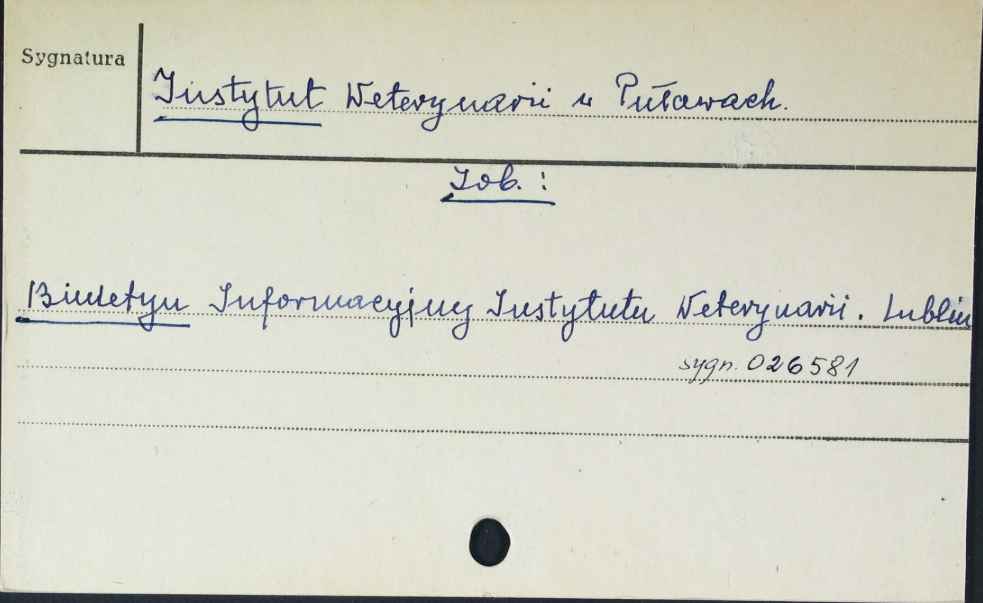 Sygnatura
Instytut Weterynarii w Puławach.
Zob. :
Biuletyn Informacyjny Instytutu Weterynarii. Lublin
sygn. 026581